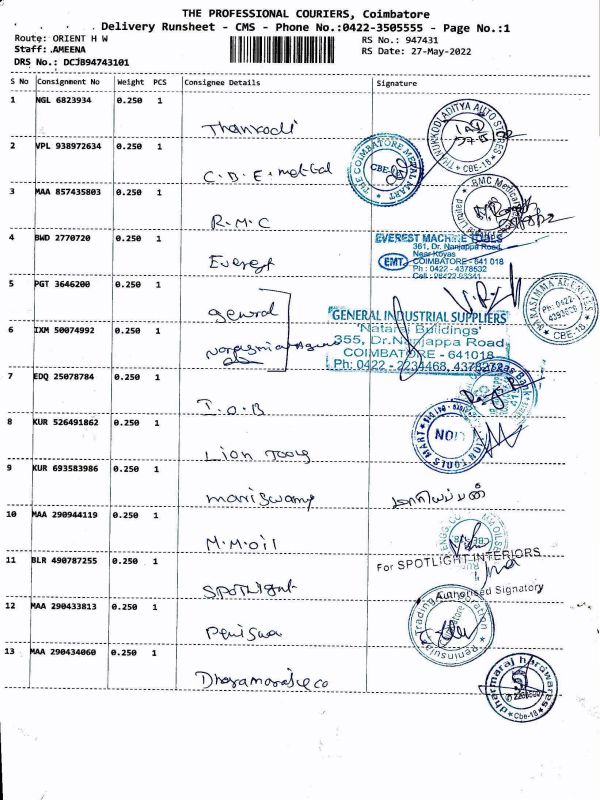 THE PROFESSIONAL COURIERS, Coimbatore
Delivery Runsheet - CMS - Phone No.:0422-3505555 - Page No.:1
Route: ORIENT H W
RS No.: 947431
Staff: AMEENA
RS Date: 27-May-2022
DRS No.: DCJB94743101
S No Consignment No Weight PCS Consignee Details Signature
1 NGL 6823934 0.250 1
THANUKKODI ADITYA AUTO STORES
CBE-18
2 VPL 938972634 0.250 1
C.B.E. metal
THE COIMBATORE METAL MART
CBE-18
3 MAA 857435803 0.250 1
R.M.C
BMC Medical
Limited
4 BWD 2770720 0.250 1
Everest
EVEREST MACHINE TOOLS
361, Dr. Nanjappa Road,
Near Koyas
EMT COIMBATORE - 641 018
Ph : 0422 - 4378532
5 PGT 3646200 0.250 1
general
GENERAL INDUSTRIAL SUPPLIERS
'Nataraj Buildings'
6 IXM 50074992 0.250 1
355, Dr.Nanjappa Road
COIMBATORE - 641018
Ph: 0422 - 2234468, 4378272
CBE-18
7 EDQ 25078784 0.250 1
I.O.B
8 KUR 526491862 0.250 1
Lion Tools
LION TOOLS MART
LION
9 KUR 693583986 0.250 1
mariswamy
மாரியப்பன்
10 MAA 290944119 0.250 1
M.M.oil
11 BLR 490787255 0.250 1
Spotlight
For SPOTLIGHT INTERIORS
Authorised Signatory
12 MAA 290433813 0.250 1
Peninsula Trading Corporation
13 MAA 290434060 0.250 1
dharmaraj hardwares
Cbe-18